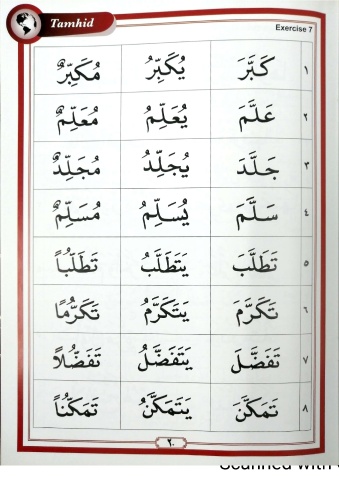 Tamhid
Exercise 7
١ كَبَّرَ يُكَبِّرُ مُكَبِّرٌ
٢ عَلَّمَ يُعَلِّمُ مُعَلِّمٌ
٣ جَلَّدَ يُجَلِّدُ مُجَلِّدٌ
٤ سَلَّمَ يُسَلِّمُ مُسَلِّمٌ
٥ تَطَلَّبَ يَتَطَلَّبُ تَطَلُّبًا
٦ تَكَرَّمَ يَتَكَرَّمُ تَكَرُّمًا
٧ تَفَضَّلَ يَتَفَضَّلُ تَفَضُّلاً
٨ تَمَكَّنَ يَتَمَكَّنُ تَمَكُّنًا
٢٠
Scanned with